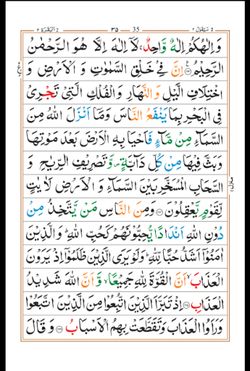 سَيَقُوۡلُ ٢ ٣٥ 35 اَلۡبَقَرَة ٢
وَ اِلٰهُكُمۡ اِلٰهٌ وَّاحِدٌ ۚ لَاۤ اِلٰهَ اِلَّا هُوَ الرَّحۡمٰنُ
الرَّحِيۡمُ اِنَّ فِىۡ خَلۡقِ السَّمٰوٰتِ وَ الۡاَرۡضِ وَ
اخۡتِلَافِ الَّيۡلِ وَ النَّهَارِ وَ الۡفُلۡكِ الَّتِىۡ تَجۡرِىۡ
فِى الۡبَحۡرِ بِمَا يَنۡفَعُ النَّاسَ وَمَاۤ اَنۡزَلَ اللّٰهُ مِنَ
السَّمَآءِ مِنۡ مَّآءٍ فَاَحۡيَا بِهِ الۡاَرۡضَ بَعۡدَ مَوۡتِهَا
وَ بَثَّ فِيۡهَا مِنۡ كُلِّ دَآبَّةٍ وَّ تَصۡرِيۡفِ الرِّيٰحِ وَ
السَّحَابِ الۡمُسَخَّرِ بَيۡنَ السَّمَآءِ وَ الۡاَرۡضِ لَاٰيٰتٍ
لِّقَوۡمٍ يَّعۡقِلُوۡنَ وَمِنَ النَّاسِ مَنۡ يَّتَّخِذُ مِنۡ
دُوۡنِ اللّٰهِ اَنۡدَادًا يُّحِبُّوۡنَهُمۡ كَحُبِّ اللّٰهِ ؕ وَ الَّذِيۡنَ
اٰمَنُوۡۤا اَشَدُّ حُبًّا لِّلّٰهِ ؕ وَلَوۡ يَرَى الَّذِيۡنَ ظَلَمُوۡۤا اِذۡ يَرَوۡنَ
الۡعَذَابَ ۙ اَنَّ الۡقُوَّةَ لِلّٰهِ جَمِيۡعًا ۙ وَّ اَنَّ اللّٰهَ شَدِيۡدُ
الۡعَذَابِ اِذۡ تَبَرَّاَ الَّذِيۡنَ اتُّبِعُوۡا مِنَ الَّذِيۡنَ اتَّبَعُوۡا
وَ رَاَوُا الۡعَذَابَ وَ تَقَطَّعَتۡ بِهِمُ الۡاَسۡبَابُ وَ قَالَ